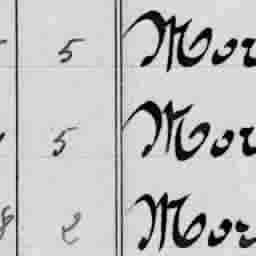 5 Mor
5 Mor
8 2 Mor